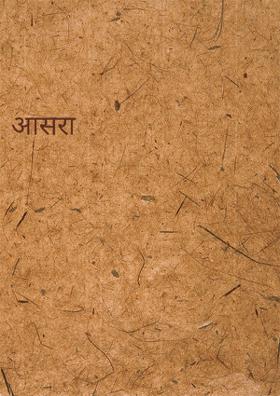 आसरा